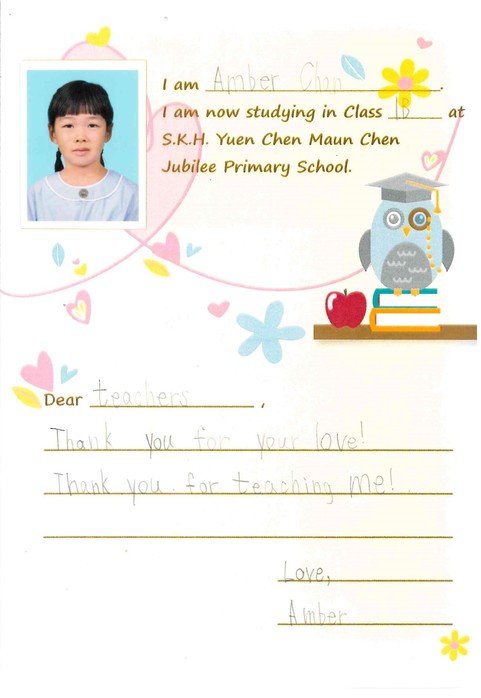 I am Amber Chan.
I am now studying in Class 1B at
S.K.H. Yuen Chen Maun Chen
Jubilee Primary School.
Dear teachers,
Thank you for your love!
Thank you for teaching me!
Love,
Amber